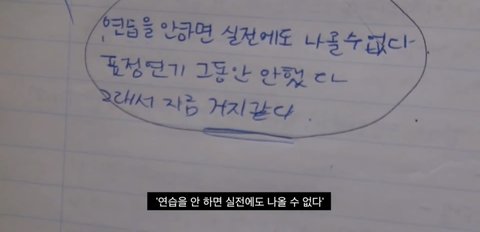 연습을 안하면 실전에도 나올 수 없다
표정연기 그동안 안했다
그래서 지금 거지같다.
'연습을 안 하면 실전에도 나올 수 없다'